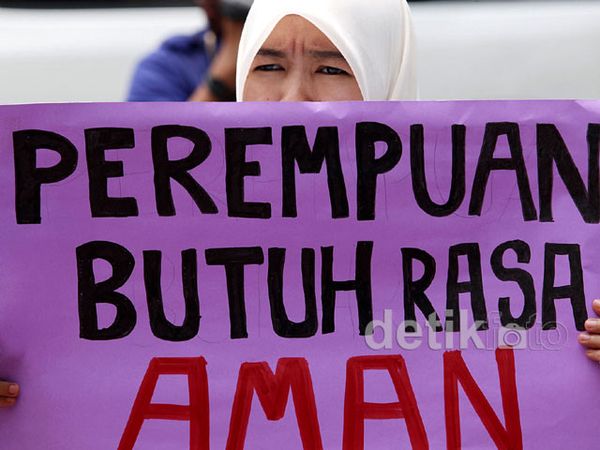 PEREMPUAN
BUTUH RASA
AMAN
detikfoto